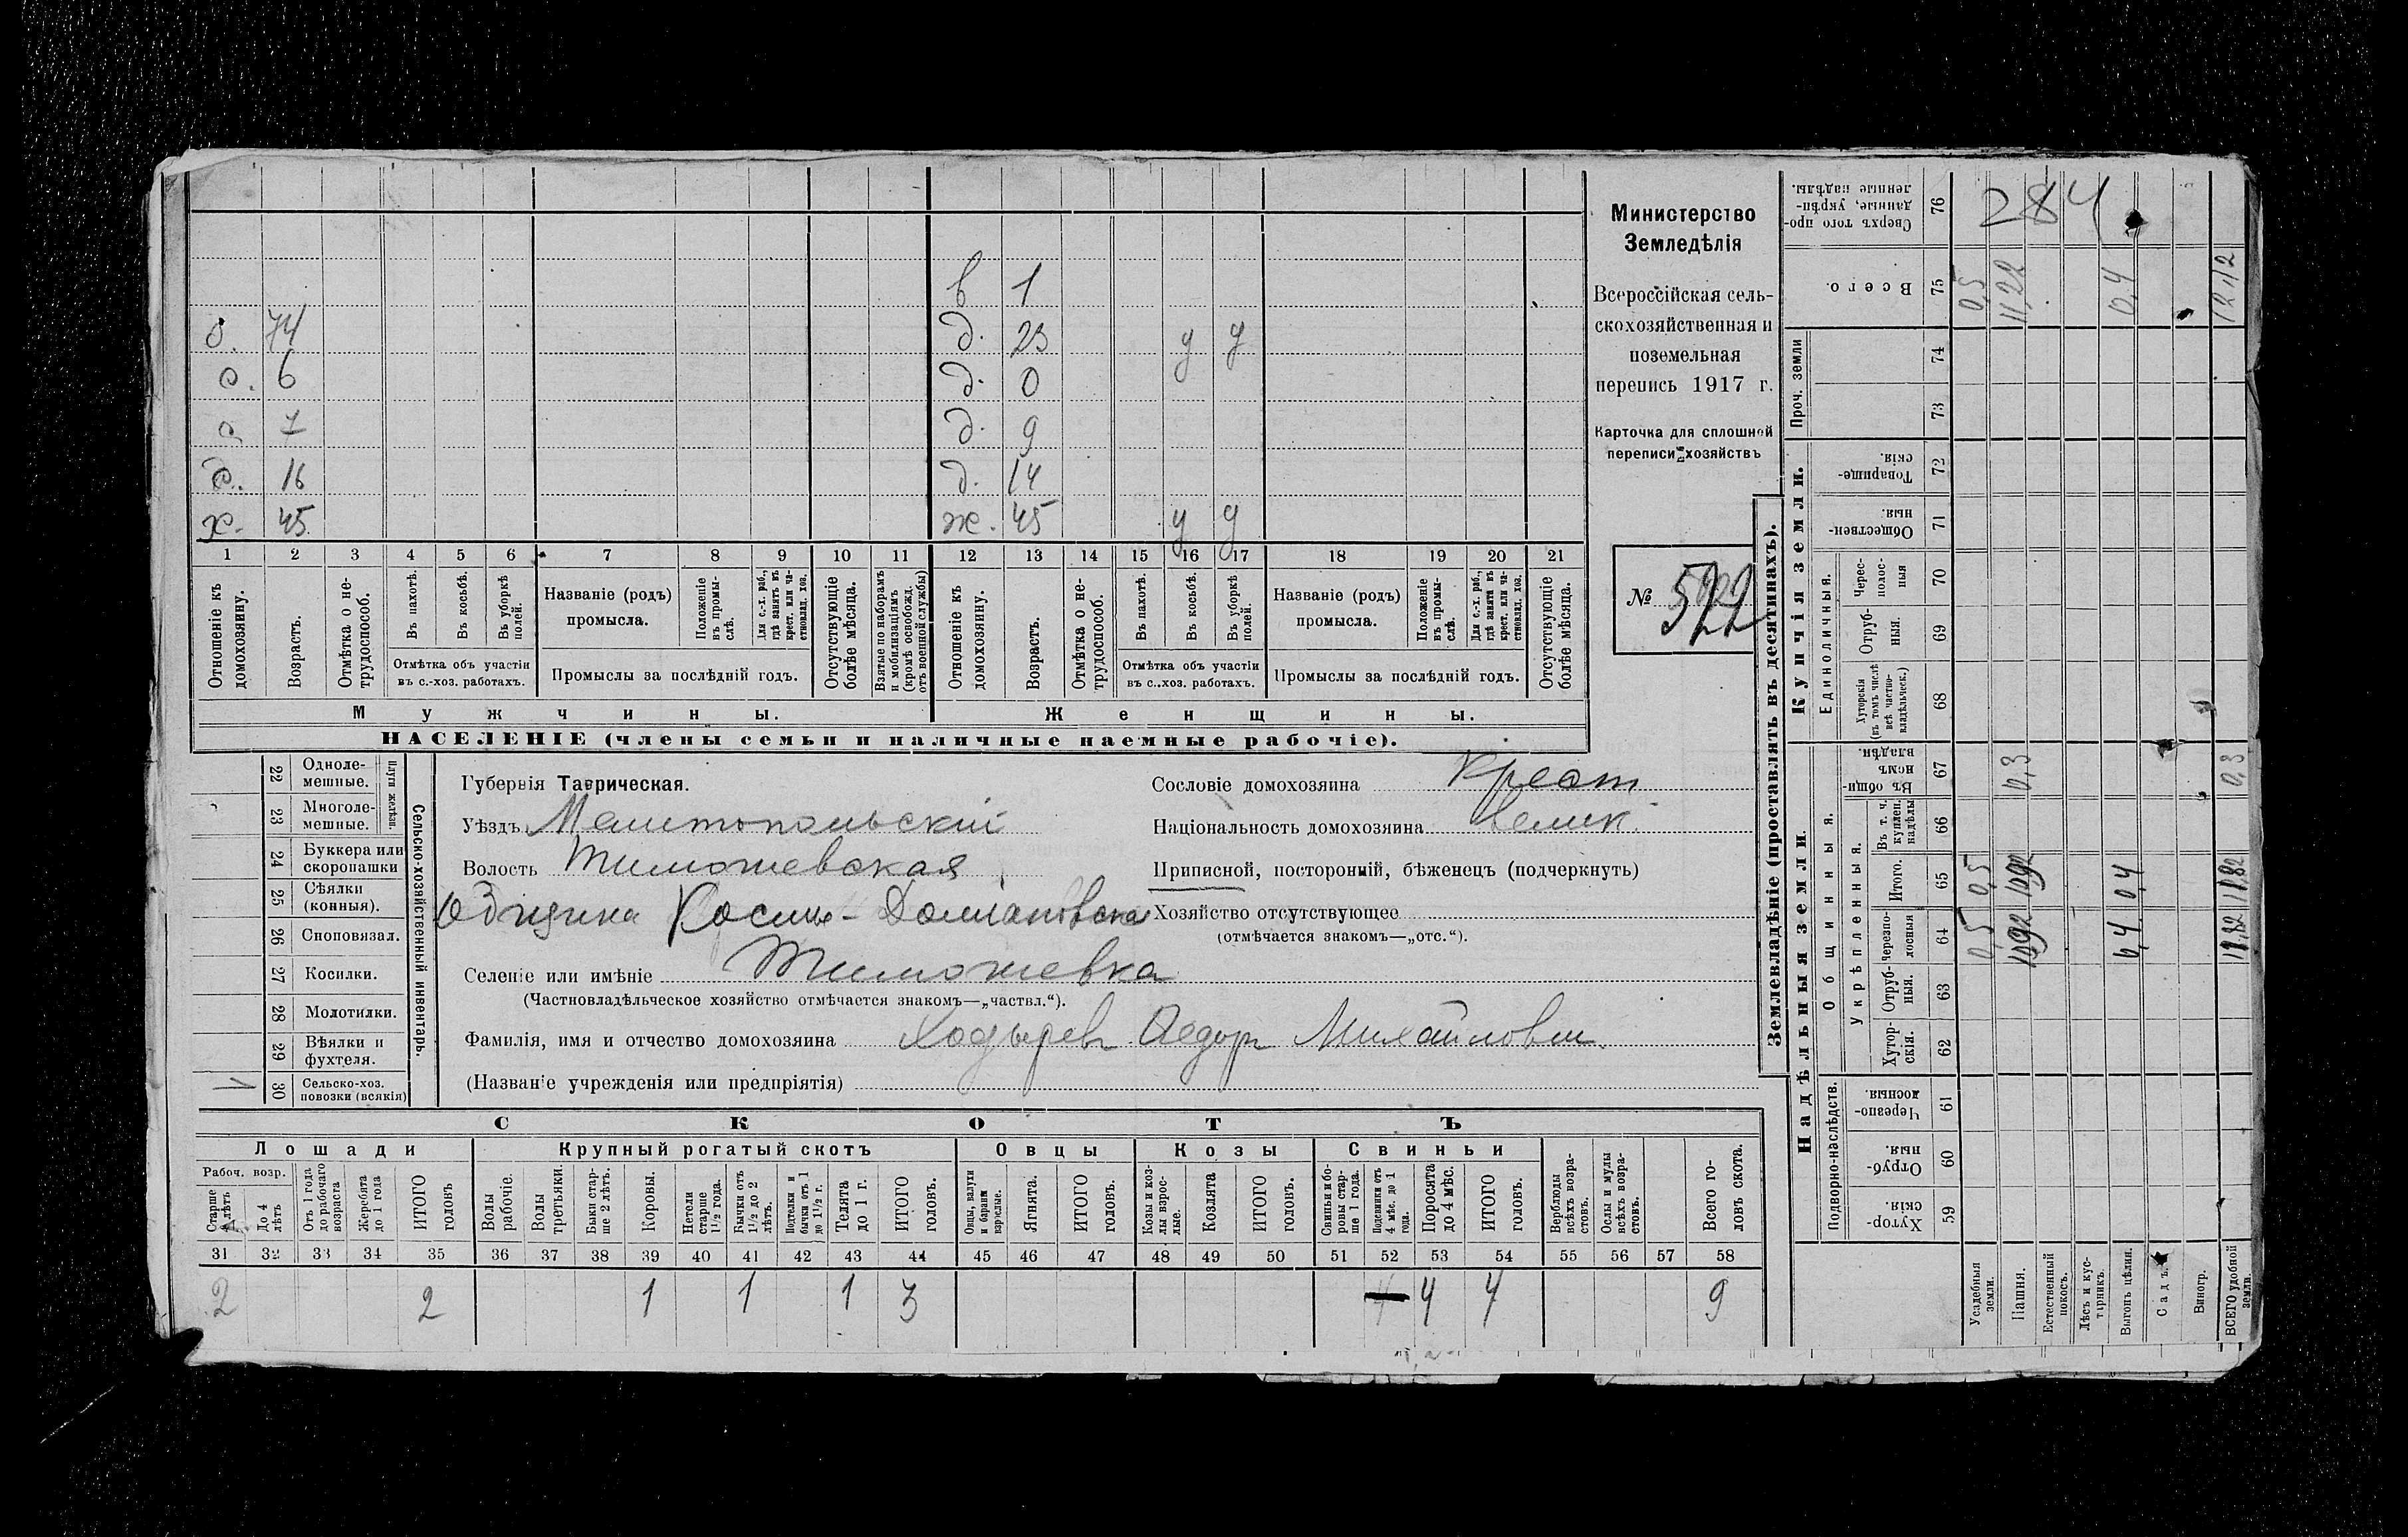 в 1
д. 74 д. 23 у у
д. 6 д. 0
д 1 д. 9
д. 16 д. 14
х. 45 ж. 45 у у
1 2 3 4 5 6 7 8 9 10 11 12 13 14 15 16 17 18 19 20 21
Отношеніе къ домохозяину.
Возрастъ.
Отмѣтка о нетрудоспособ.
Въ пахотѣ.
Въ косьбѣ.
Въ уборкѣ полей.
Отмѣтка объ участіи въ с.-хоз. работахъ.
Названіе (родъ) промысла.
Положеніе въ промыслѣ.
Для с.-х. раб., гдѣ занятъ въ крест. или частновлад. хоз.
Промыслы за послѣдній годъ.
Отсутствующіе болѣе мѣсяца.
Взятые по наборамъ и мобилизаціямъ (кромѣ освобожд. отъ военной службы)
Отношеніе къ домохозяину.
Возрастъ.
Отмѣтка о нетрудоспособ.
Въ пахотѣ.
Въ косьбѣ.
Въ уборкѣ полей.
Отмѣтка объ участіи въ с..хоз. работахъ.
Названіе (родъ) промысла.
Положеніе въ промыслѣ.
Для с.-х. раб., гдѣ занята въ крест. или частновлад. хоз.
Промыслы за послѣдній годъ.
Отсутствующіе болѣе мѣсяца.
Мужчины. Женщины.
НАСЕЛЕНІЕ (члены семьи и наличные наемные рабочіе).
Министерство
Земледѣлія
Всероссійская сель-
скохозяйственная и
поземельная
перепись 1917 г.
Карточка для сплошной
переписи хозяйствъ
№ 522
22 Одноле-
мешные.
Плуги желѣзн.
23 Многоле-
мешные.
24 Буккера или
скоропашки
25 Сѣялки
(конныя).
26 Сноповязал.
27 Косилки.
28 Молотилки.
29 Вѣялки и
фухтеля.
30 Сельско-хоз.
повозки (всякія)
Сельско-хозяйственный инвентарь.
Губернія Таврическая.
Уѣздъ Мелитопольскій
Волость Тимошевская
Община Космо-Домiановская
Селеніе или имѣніе Тимошевка
(Частновладѣльческое хозяйство отмѣчается знакомъ—„частвл.“).
Фамилія, имя и отчество домохозяина Ходырев Федор Михайлович.
(Названіе учрежденія или предпріятія)
Сословіе домохозяина Крест
Національность домохозяина Велик.
Приписной, посторонній, бѣженец (подчеркнуть)
Хозяйство отсутствующее
(отмѣчается знакомъ—„отс.“).
СКОТЪ
Лошади Крупный рогатый скотъ Овцы Козы Свиньи
Рабоч. возр.
Старше 4 лѣтъ
До 4 лѣтъ
Отъ 1 года до рабочаго возраста
Жеребята до 1 года
ИТОГО головъ
Волы рабочіе.
Волы третьяки.
Быки старше 2 лѣтъ.
Коровы.
Нетели старше 1½ года.
Бычки отъ 1½ до 2 лѣтъ.
Подтелки и бычки отъ 1 до 1½ г.
Телята до 1 г.
ИТОГО головъ.
Овцы, валухи и бараны взрослые.
Ягнята.
ИТОГО головъ.
Козы и козлы взрослые.
Козлята
ИТОГО головъ.
Свиньи и боровы старше 1 года.
Подсвинки отъ 4 мѣс. до 1 года.
Поросята до 4 мѣс.
ИТОГО головъ.
Верблюды всѣхъ возрастовъ.
Ослы и мулы всѣхъ возрастовъ.
Всего головъ скота.
31 32 33 34 35 36 37 38 39 40 41 42 43 44 45 46 47 48 49 50 51 52 53 54 55 56 57 58
2 2 1 1 1 3 4 4 4 9
Землевладѣніе (проставлять въ десятинахъ).
Надѣльныя земли.
Купчія земли.
Проч. земли
Подворно-наслѣдств.
Общинныя.
Укрѣпленныя.
Единоличныя.
Сверхъ того проданные, укрѣпленные надѣлы. 76
Всего. 75
74
73
Товарищескія. 72
Общественныя. 71
Чересполосныя 70
Отрубныя. 69
Хуторскія (въ томъ числѣ всѣ частновладѣльческ.) 68
Въ общинномъ владѣн. 67
Въ т. ч. куплен. надѣлы 66
Итого. 65
Черезполосныя 64
Отрубныя. 63
Хуторскія. 62
Черезполосныя. 61
Отрубныя. 60
Хуторскія. 59
Усадебныя земли.
Пашня.
Естественный покосъ.
Лѣсъ и кустарникъ.
Выгонъ цѣлин.
Садъ.
Виногр.
ВСЕГО удобной земли.
284
0,5 11,22 0,4 12,12
0,3 0,3
0,5 1092 0,4 11,82
0,5 1092 0,4 11,82